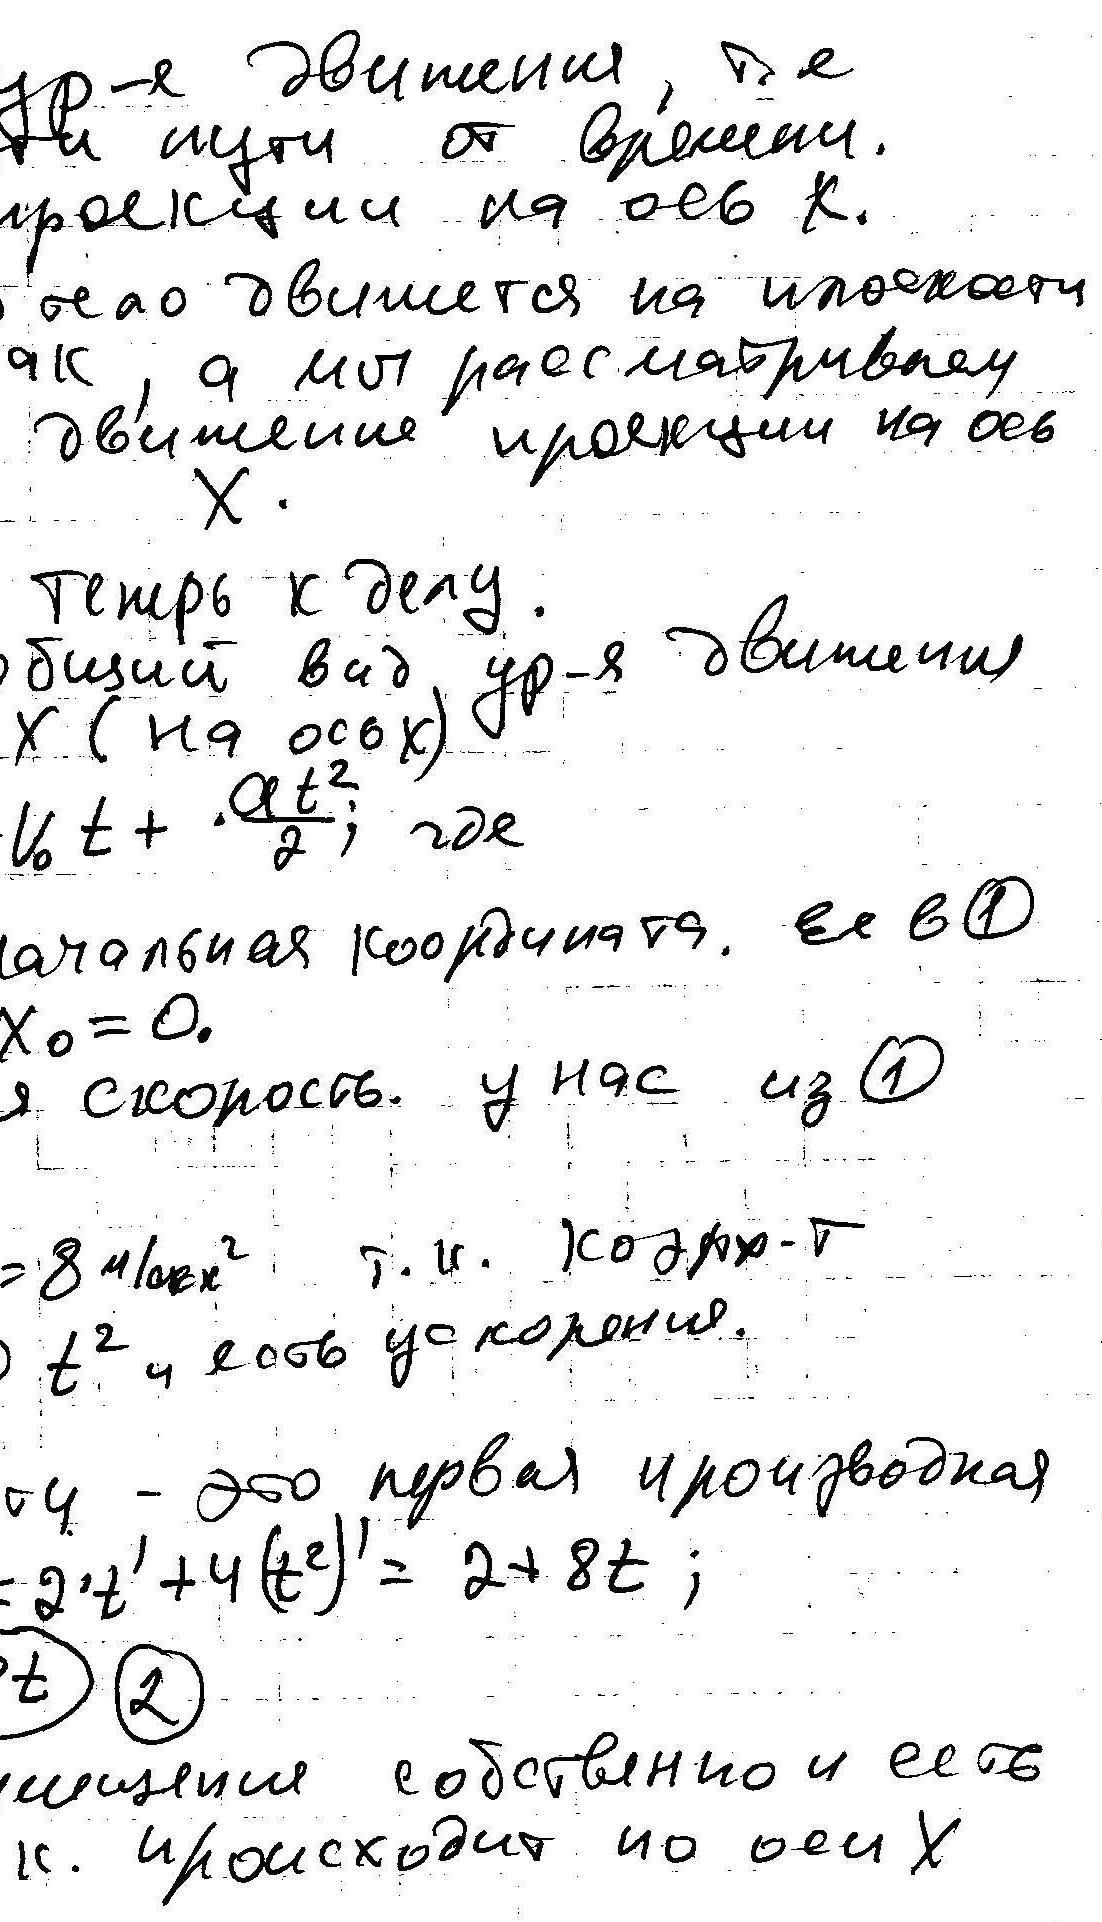 ур-я движения, т.е
ти пути от времени.
проекции на ось X.
тело движется на плоскости
як, а мы рассматриваем
движение проекции на ось
X.
Теперь к делу.
общий вид ур-я движения
X (на ось X)
V₀ t + at²/2; где
начальная координата. Ее в ①
X₀ = 0.
я скорость. у нас из ①
= 8 м/сек² т.к. коэфф-т
t² и есть ускорения.
ти - это первая производная
= 2·t' + 4(t²)' = 2 + 8t ;
t ②
мещения собственно и есть
к. происходит по оси X